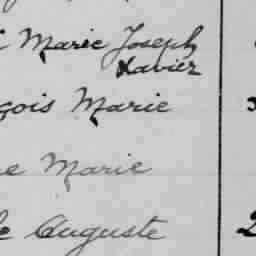 Marie Joseph
Xavier
çois Marie
e Marie
le Auguste 2